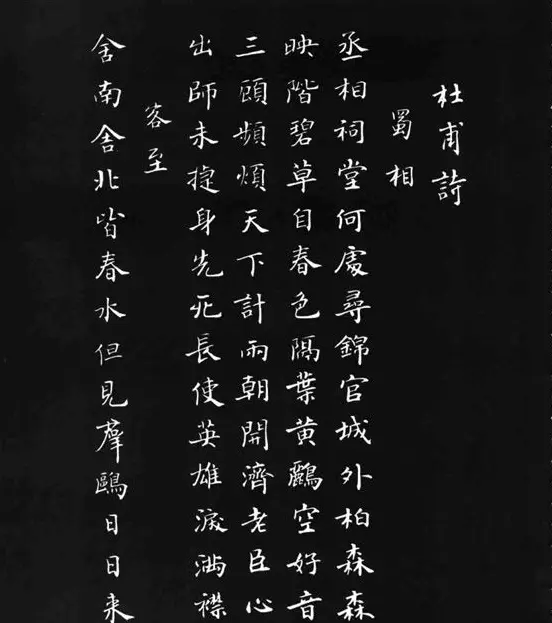 杜甫詩
蜀相
丞相祠堂何處尋錦官城外柏森森
映階碧草自春色隔葉黃鸝空好音
三顧頻煩天下計兩朝開濟老臣心
出師未捷身先死長使英雄淚滿襟
客至
舍南舍北皆春水但見群鷗日日來